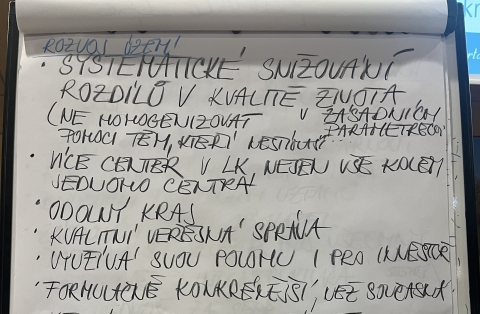 ROZVOJ ÚZEMÍ
• SYSTEMATICKÉ SNIŽOVÁNÍ
ROZDÍLŮ V KVALITĚ ŽIVOTA
(NE HOMOGENIZOVAT V ZÁSADNÍCH
PARAMETRECH
POMOCI TĚM, KTEŘÍ NESTÍHAJÍ...
• VÍCE CENTER V LK, NEJEN VŠE KOLEM
JEDNOHO CENTRA
• ODOLNÝ KRAJ
• KVALITNÍ VEŘEJNÁ SPRÁVA
• VYUŽÍVÁ SVOU POLOHU I PRO INVESTOR
• FORMULAČNĚ KONKRÉTNĚJŠÍ, NEŽ SOUČASNÁ